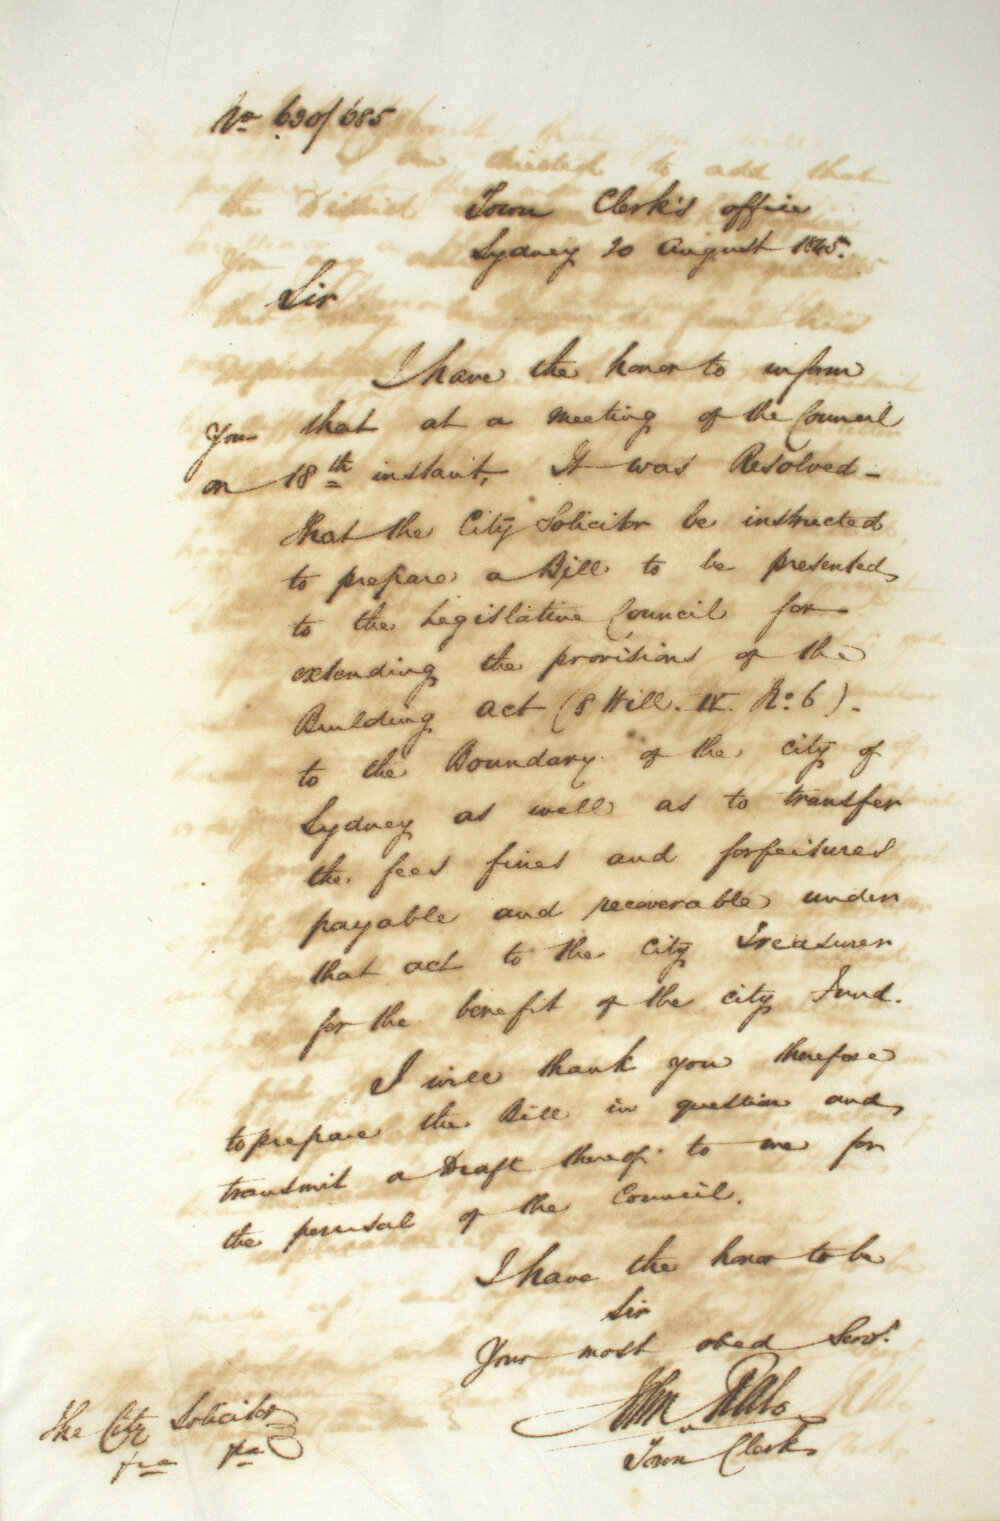 No 630/685
Town Clerk's office
Sydney 20 August 1845.
Sir
I have the honor to inform
you that at a meeting of the Council
on 18th instant, It was Resolved -
that the City Solicitor be instructed
to prepare a Bill to be presented
to the Legislative Council for
extending the provisions of the
Building act (8 Will. IV. No. 6). -
to the Boundary of the city of
Sydney as well as to transfer
the fees fines and forfeitures
payable and recoverable under
that act to the city Treasurer
for the benefit of the city Fund.
I will thank you therefore
to prepare the Bill in question and
transmit a Draft thereof to me for
the perusal of the Council.
I have the honor to be
Sir
Your most obed Servt.
John
Town Clerk
The City Solicitor